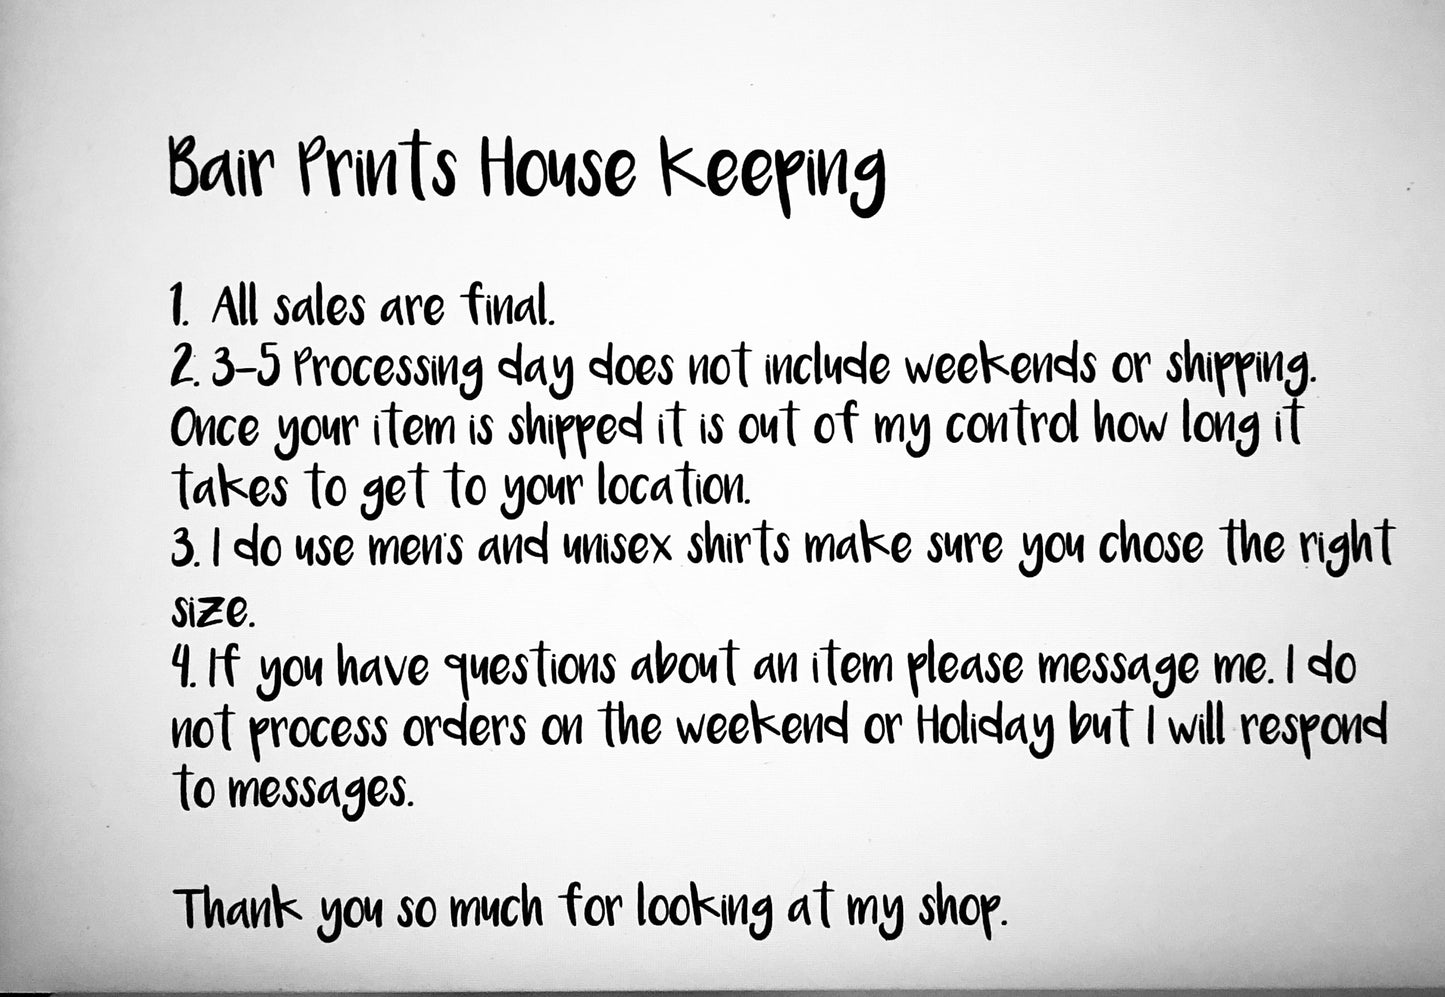 Bair Prints House Keeping
1. All sales are final.
2. 3-5 Processing day does not include weekends or shipping.
Once your item is shipped it is out of my control how long it
takes to get to your location.
3. I do use men's and unisex shirts make sure you chose the right
size.
4. If you have questions about an item please message me. I do
not process orders on the weekend or Holiday but I will respond
to messages.
Thank you so much for looking at my shop.